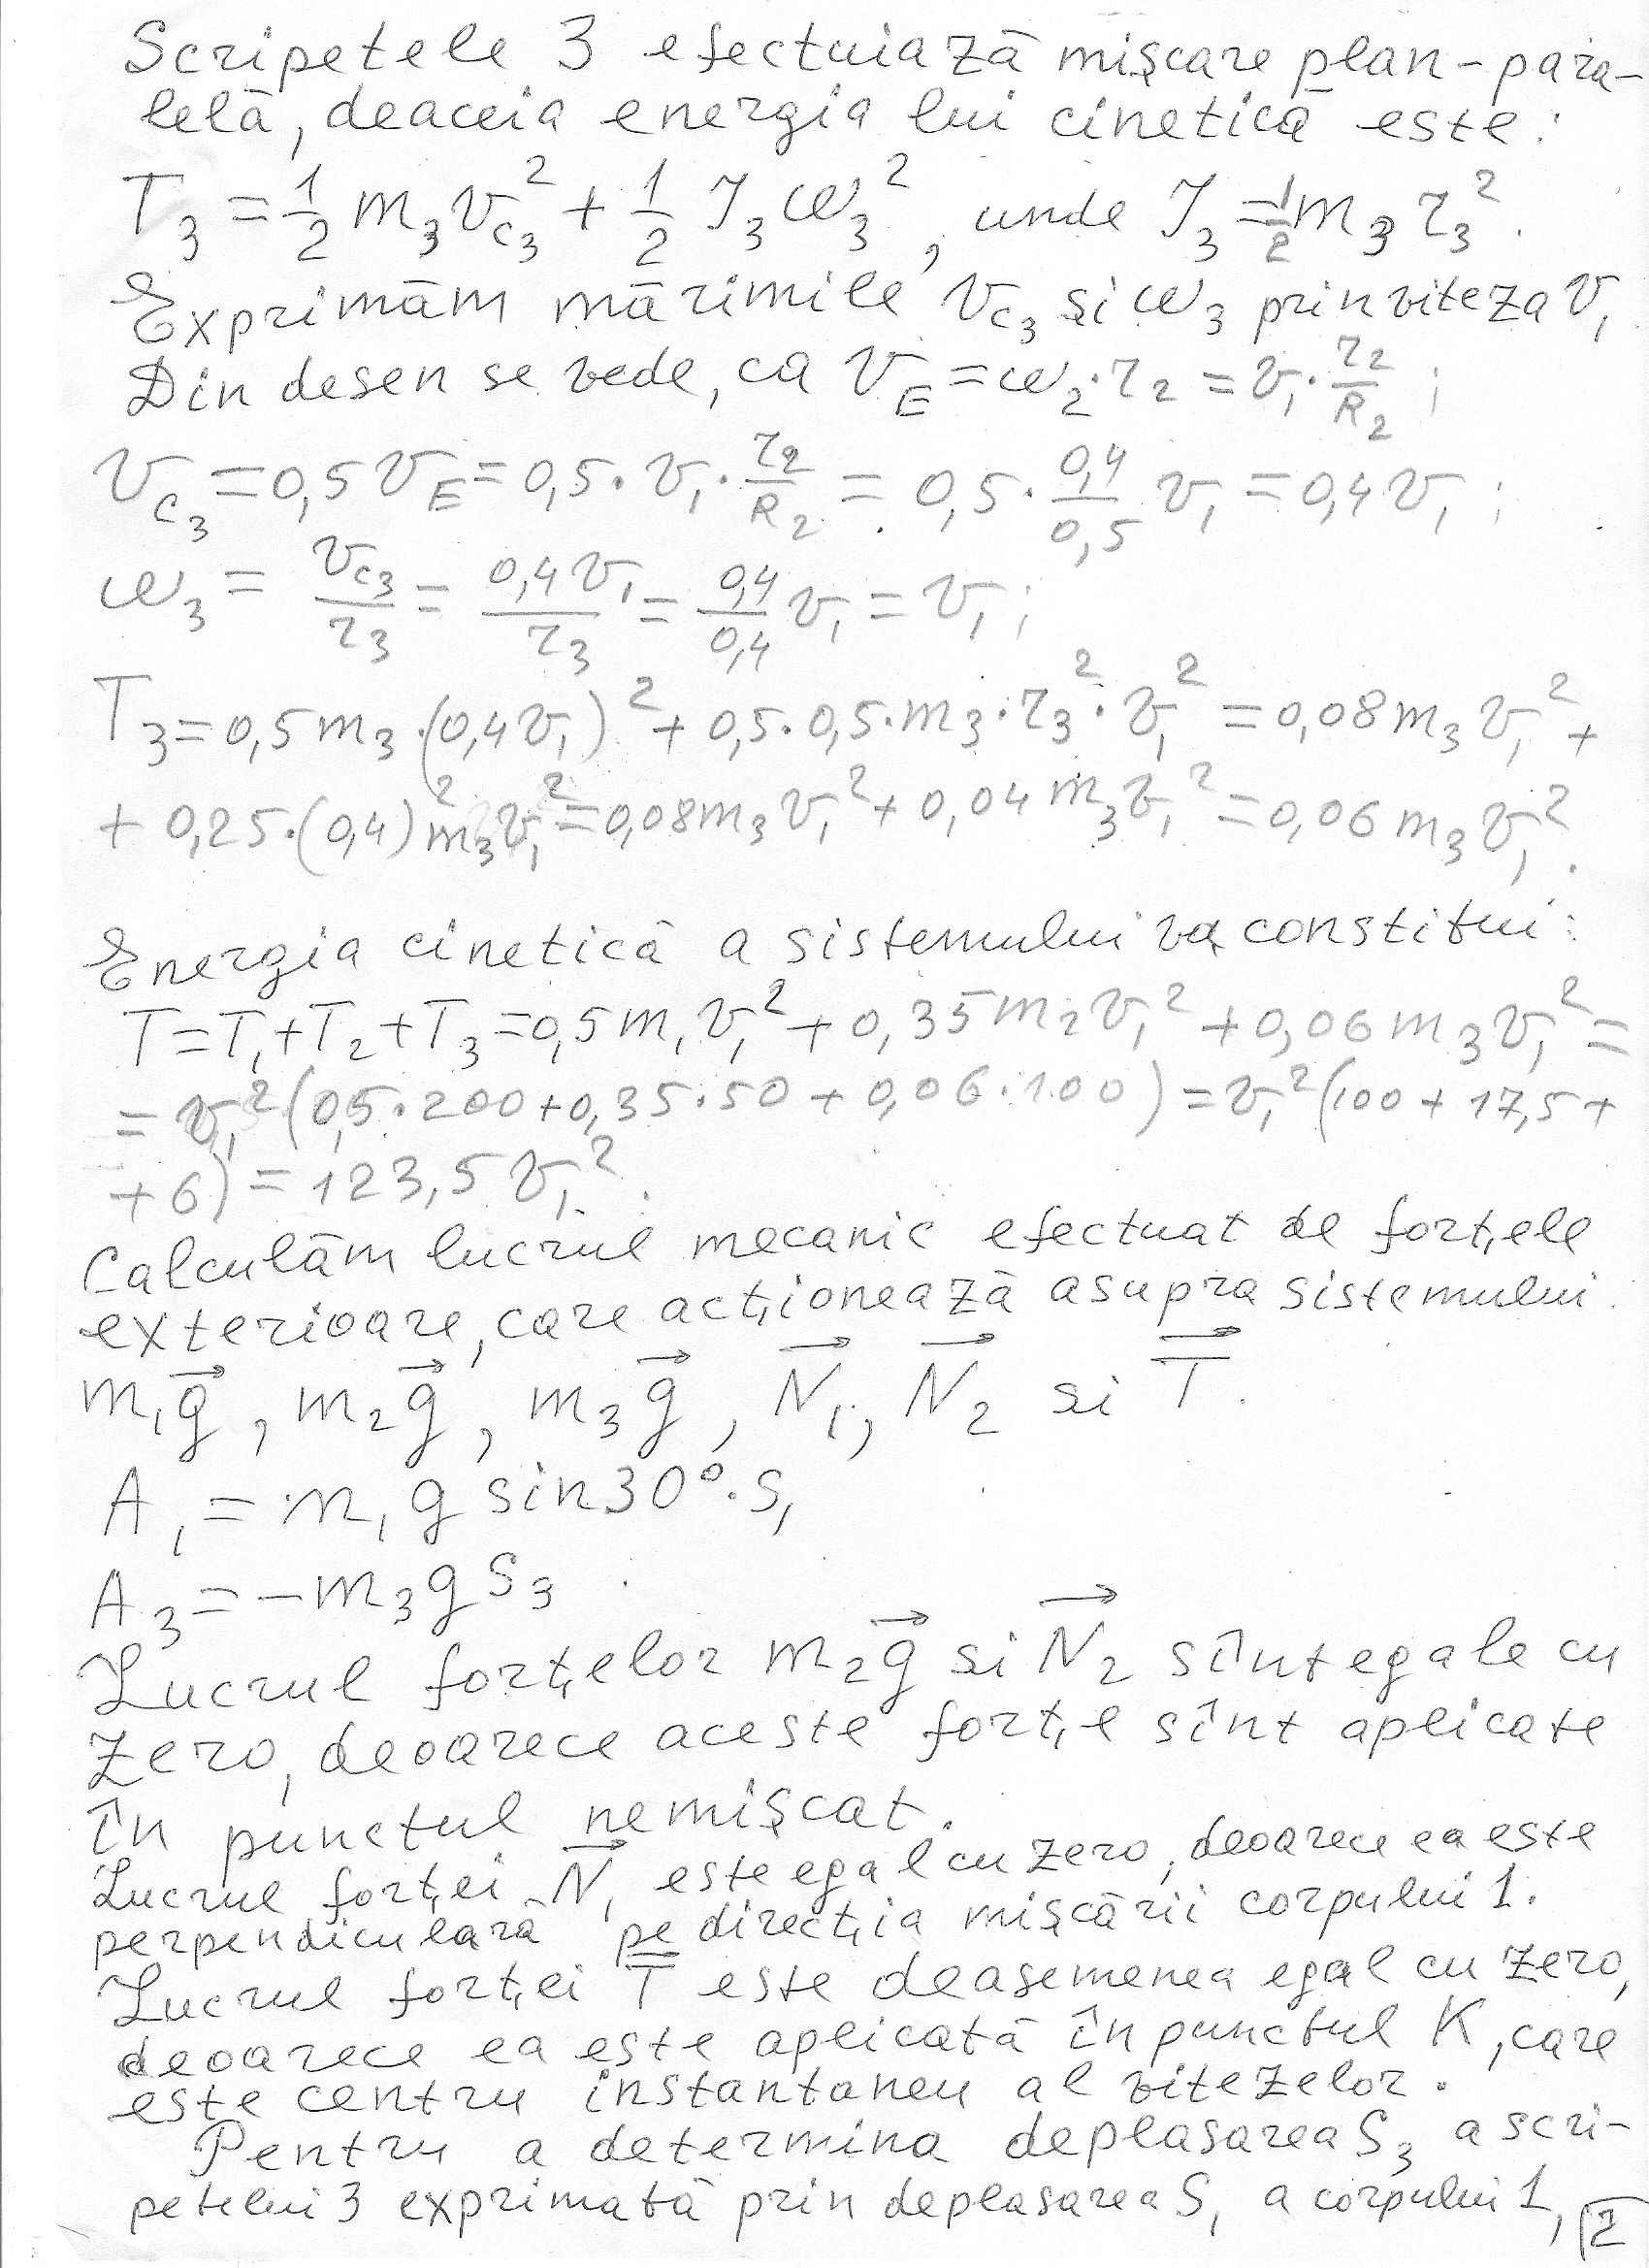 Scripetele 3 efectuiază mișcare plan-para-
lelă, deaceia energia lui cinetică este:
T₃ = 1/2 m₃ v_C₃² + 1/2 J₃ ω₃², unde J₃ = 1/2 m₃ r₃².
Exprimăm mărimile v_C₃ și ω₃ prin viteza v₁
Din desen se vede, ca v_E = ω₂·r₂ = v₁·r₂/R₂;
v_C₃ = 0,5 v_E = 0,5·v₁·r₂/R₂ = 0,5·0,4/0,5 v₁ = 0,4 v₁;
ω₃ = v_C₃/r₃ = 0,4 v₁/r₃ = 0,4/0,4 v₁ = v₁;
T₃ = 0,5 m₃·(0,4 v₁)² + 0,5·0,5·m₃·r₃²·v₁² = 0,08 m₃ v₁² +
+ 0,25·(0,4)² m₃ v₁² = 0,08 m₃ v₁² + 0,04 m₃ v₁² = 0,06 m₃ v₁².
Energia cinetică a sistemului va constitui:
T = T₁ + T₂ + T₃ = 0,5 m₁ v₁² + 0,35 m₂ v₁² + 0,06 m₃ v₁² =
= v₁² (0,5·200 + 0,35·50 + 0,06·100) = v₁² (100 + 17,5 +
+ 6) = 123,5 v₁².
Calculăm lucrul mecanic efectuat de forțele
exterioare, care acționează asupra sistemului.
m₁g⃗, m₂g⃗, m₃g⃗, N⃗₁, N⃗₂ si T⃗.
A₁ = m₁ g sin30°·S₁
A₃ = -m₃ g S₃
Lucrul forțelor m₂g⃗ si N⃗₂ sînt egale cu
zero, deoarece aceste forțe sînt aplicate
în punctul nemișcat.
Lucrul forței N⃗₁ este egal cu zero, deoarece ea este
perpendiculară pe direcția mișcării corpului 1.
Lucrul forței T⃗ este deasemenea egal cu zero,
deoarece ea este aplicată în punctul K, care
este centru instantaneu al vitezelor.
Pentru a determina deplasarea S₃ a scri-
petelui 3 exprimată prin deplasarea S₁ a corpului 1,
2